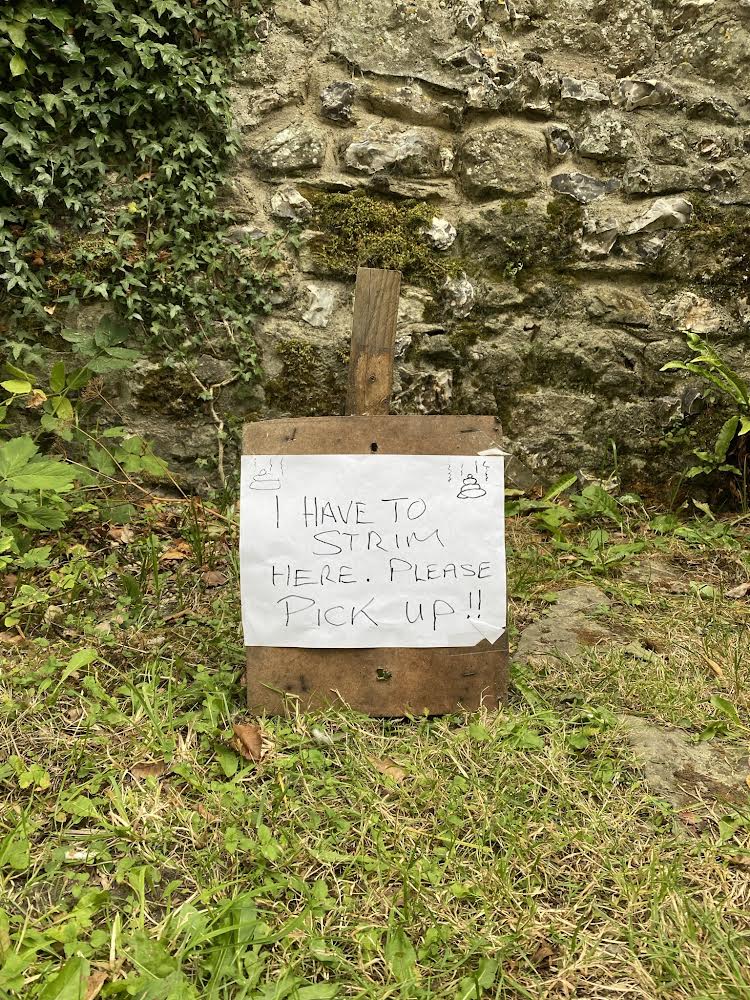 I HAVE TO
STRIM
HERE. PLEASE
PICK UP!!